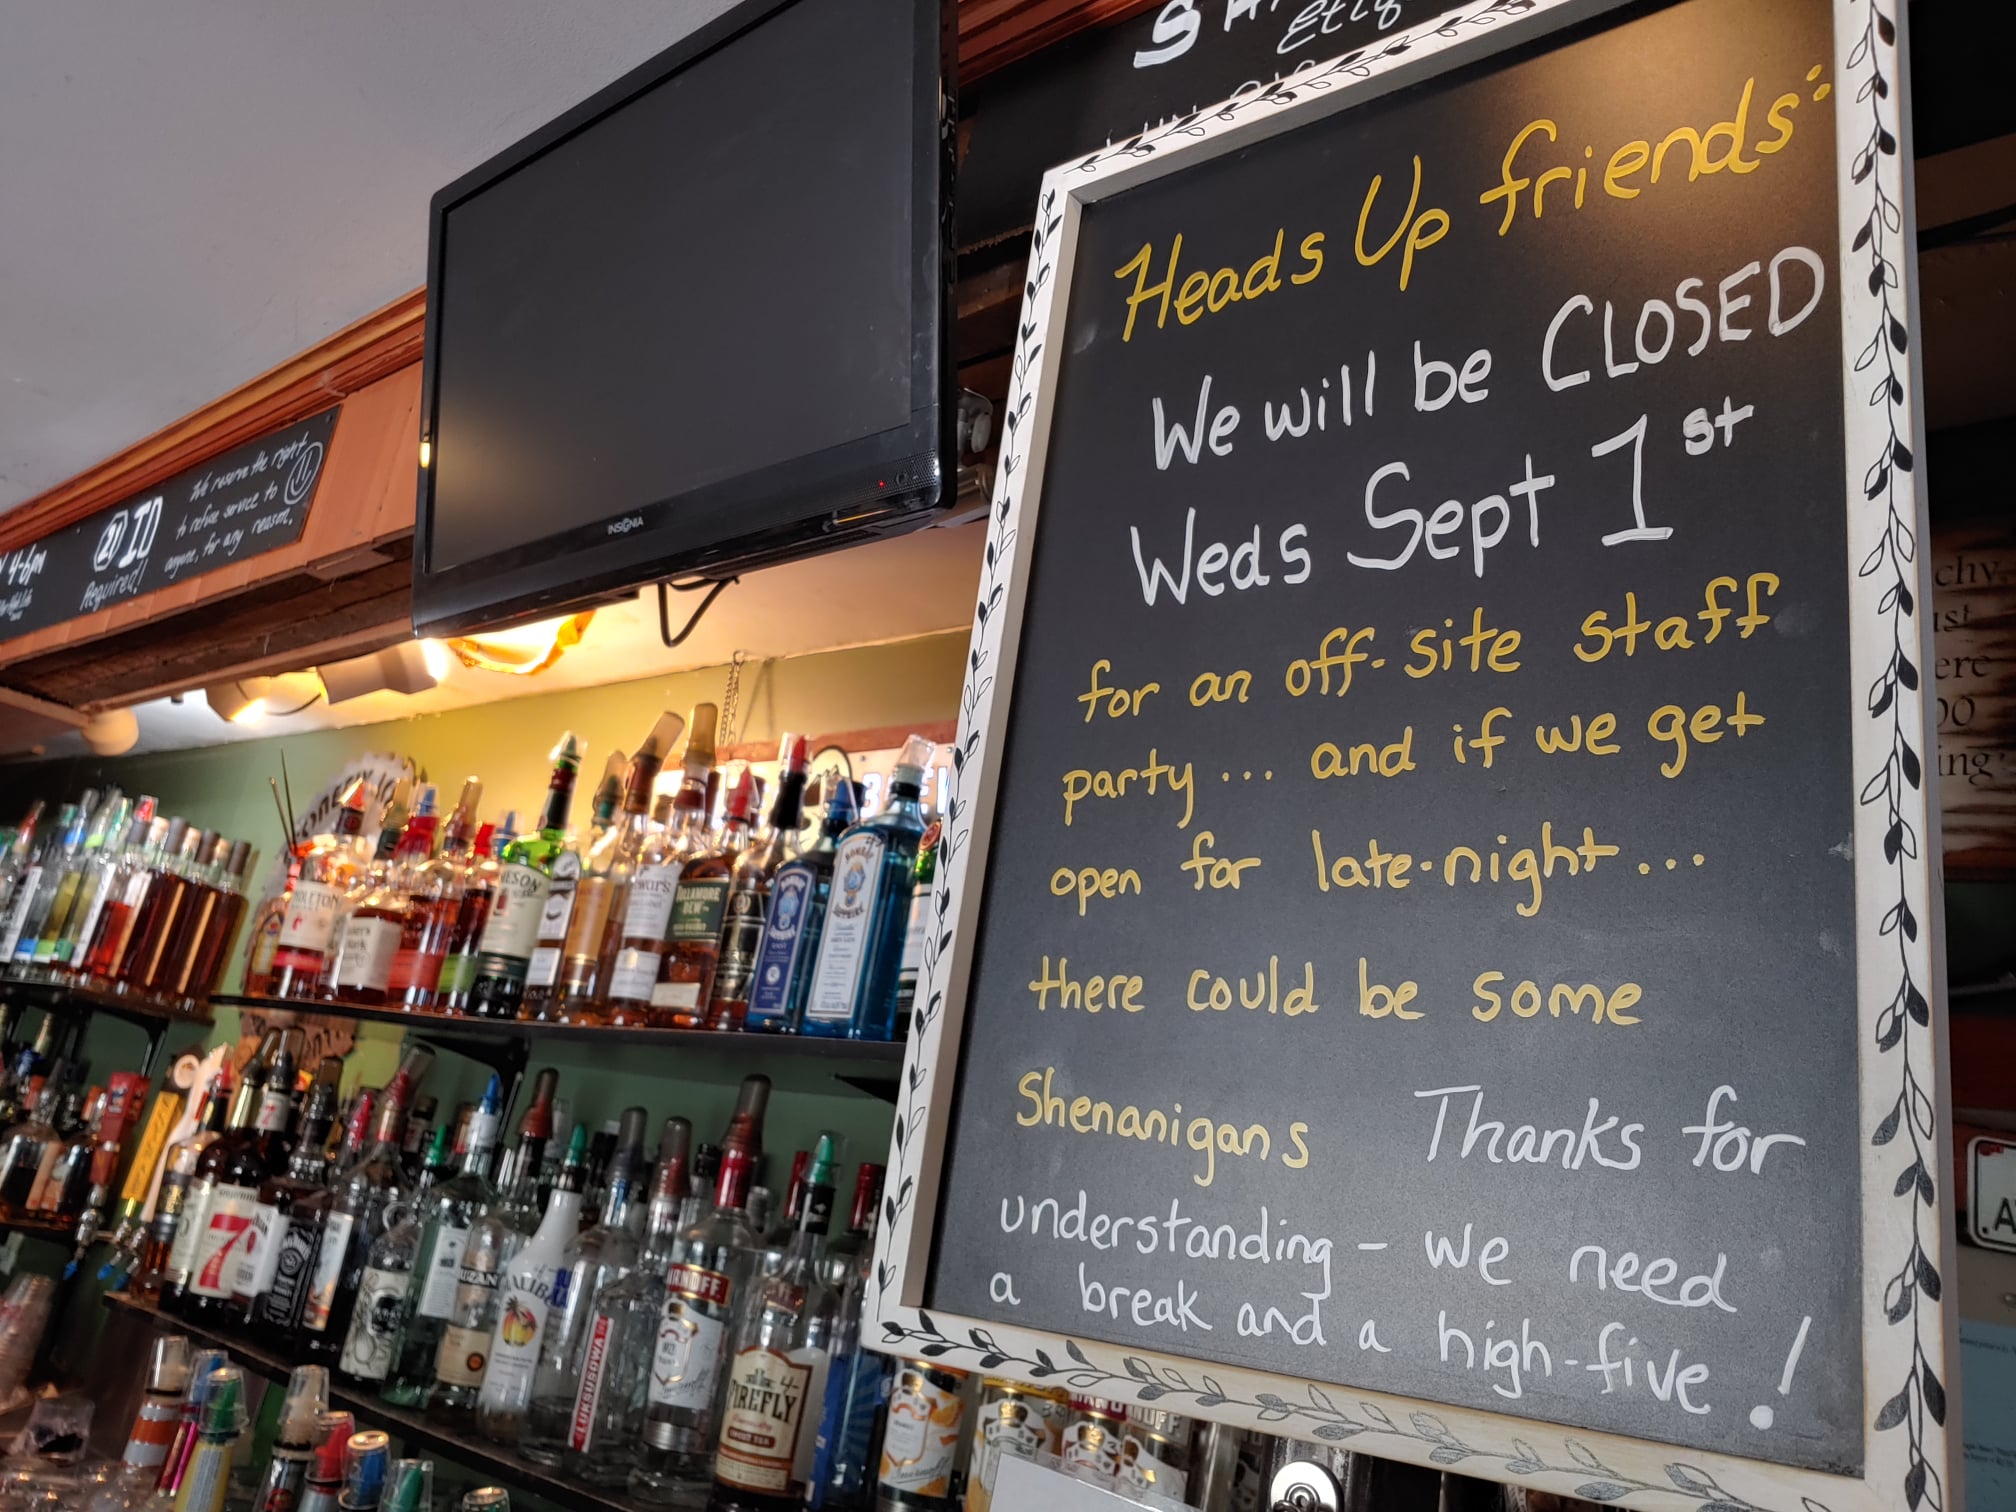 Heads Up friends:
We will be CLOSED
Weds Sept 1st
for an off-site staff
party... and if we get
open for late-night...
there could be some
Shenanigans Thanks for
understanding - we need
a break and a high-five!
INSIGNIA
4-6pm
21 ID
Required!
We reserve the right
to refuse service to
anyone, for any reason.
JAMESON
TULLAMORE
DEW
BOMBAY
SAPPHIRE
7
MALIBU
LUKSUSOWA
SMIRNOFF
FIREFLY